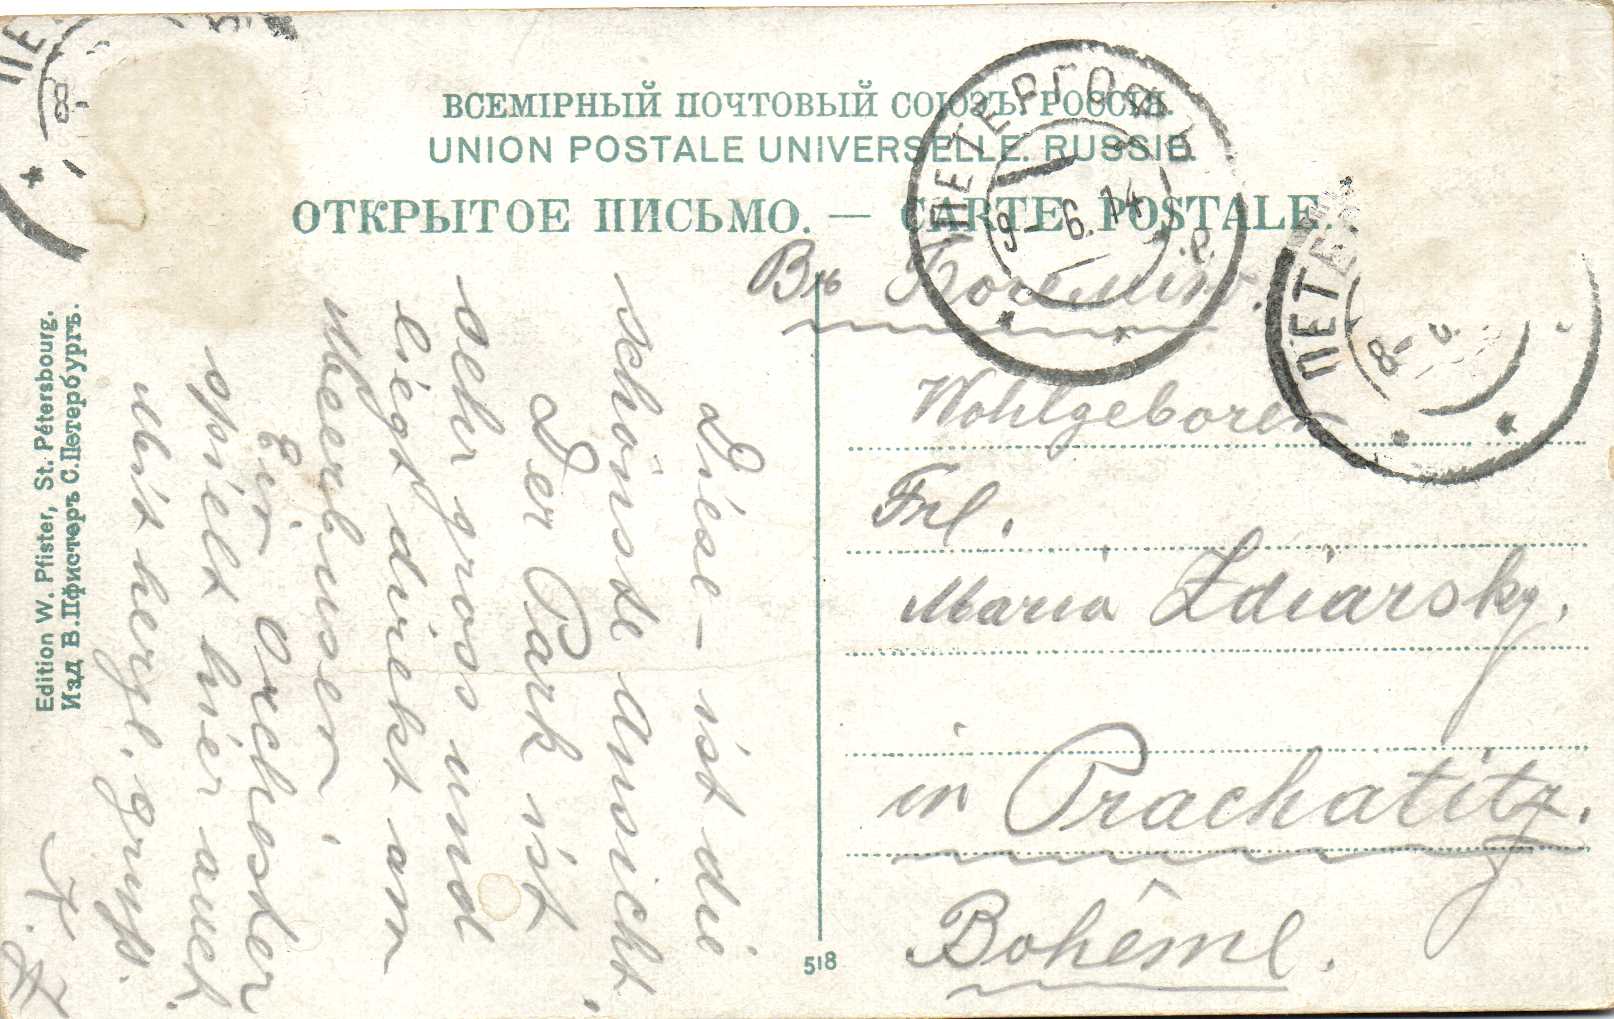 ВСЕМІРНЫЙ ПОЧТОВЫЙ СОЮЗЪ. РОССІЯ.
UNION POSTALE UNIVERSELLE. RUSSIE.
ОТКРЫТОЕ ПИСЬМО. — CARTE POSTALE.
ПЕТЕРГОФЪ
9-6.14
ПЕТЕ
8-
ПЕ
8-
Въ Богемію.
Wohlgeboren
Frl.
Maria Zdiarsky.
in Prachatitz.
Bohême.
Diese - ist die
schönste Ansicht.
Der Park ist
sehr gross und
liegt direkt am
Meerbusen.
Ein Orchester
spielt hier auch.
Mit herzl. gruß.
Edition W. Pfister, St. Pétersbourg.
Изд В.Пфистеръ С.Петербургъ.
518